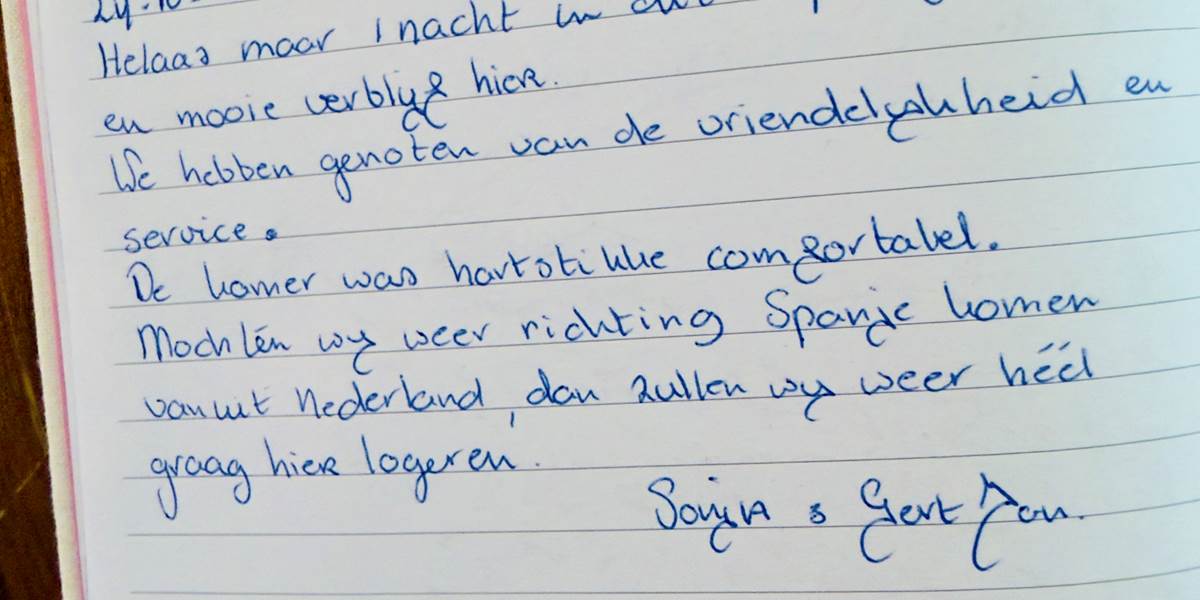 Helaas maar 1 nacht in
en mooie verblijf hier.
We hebben genoten van de vriendelijkheid en
service.
De kamer was hartstikke comfortabel.
Mochten wij weer richting Spanje komen
vanuit Nederland, dan zullen wij weer héél
graag hier logeren.
Sonja & Gert Jan.